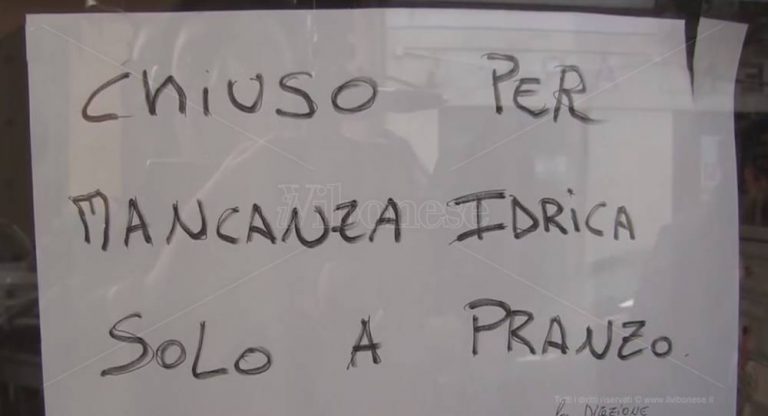 CHiUSO PER
MANCANZA IDRiCA
SOLO A PRANZO.
Il Vibonese
Tutti i diritti riservati © www.ilvibonese.it